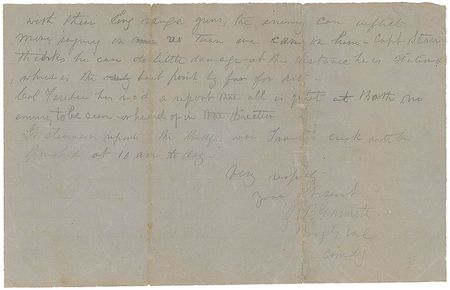 with their long range guns, the enemy can inflict
more injury on us than we can on him - Capt
thinks he can do little damage at the distance he is stationed
, which is the best point by far for
Col has made a report that all is quiet at Bath no
enemy to be seen or heard of in that direction
Lt reports the bridge over creek will be
finished at 10 am to day -
Very respectfy
your obt servt
R B Garnett
Brig Genl
Comdg